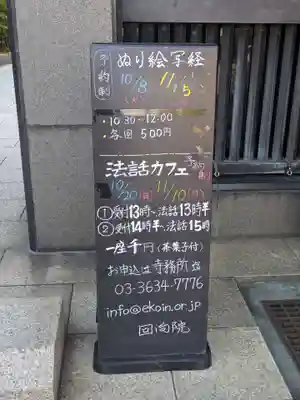 予約制 ぬり絵写経
10/8 11/5
・10:30-12:00
・各回 500円
法話カフェ 予約制
10/20(日) 11/10(日)
①受付13時〜、法話13時半
②受付14時半〜、法話15時
一座千円(茶菓子付)
お申込は寺務所迄
03-3634-7776
info@ekoin.or.jp
回向院